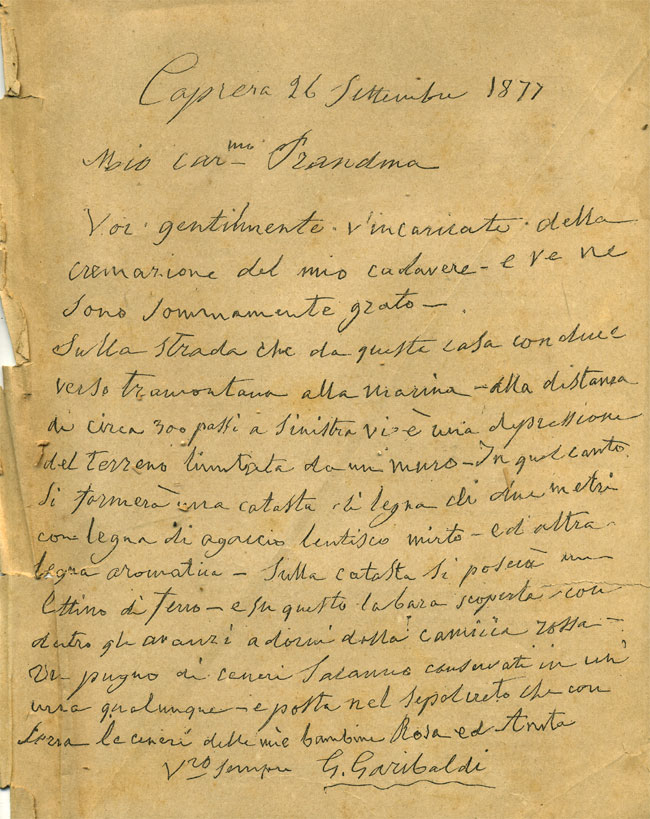 Caprera 26 Settembre 1877
Mio car.mo Prandina
Voi gentilmente v'incaricate della
cremazione del mio cadavere - e ve ne
sono sommamente grato -
Sulla strada che da questa casa conduce
verso tramontana alla marina - alla distanza
di circa 300 passi a sinistra vi è una depressione
del terreno limitata da un muro - In quel canto
si formerà una catasta di legna di due metri
con legna di agaccio lentisco mirto - ed altra
legna aromatica - Sulla catasta si poserà un
lettino di ferro - e su questo la bara scoperta - con
dentro gli avanzi adorni della camicia rossa -
Un pugno di ceneri saranno conservati in un'
urna qualunque - e posta nel sepolcreto che con
serva le ceneri delle mie bambine Rosa ed Anita
Vro sempre G. Garibaldi